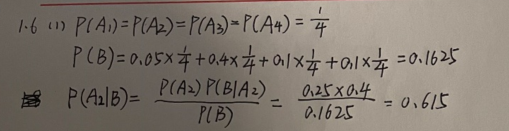 1.6 (1) P(A₁)=P(A₂)=P(A₃)=P(A₄)=1/4
P(B)=0.05×1/4+0.4×1/4+0.1×1/4+0.1×1/4=0.1625
P(A₂|B)= P(A₂)P(B|A₂)/P(B) = 0.25×0.4/0.1625 =0.615